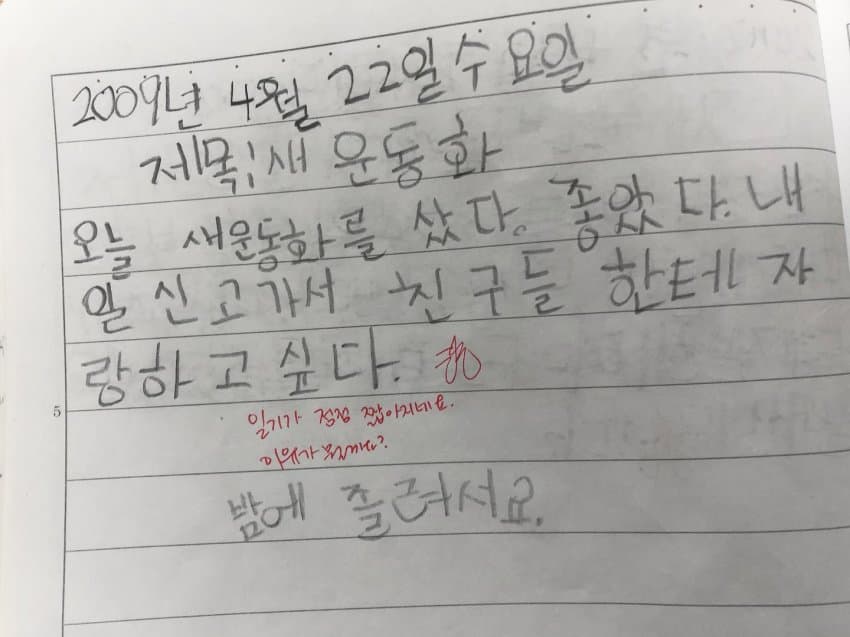 2009년 4월 22일 수요일
제목:새 운동화
오늘 새운동화를 샀다. 좋았다. 내
일 신고가서 친구들 한테 자
랑하고 싶다.
일기가 점점 짧아지네요.
이유가 뭔가요?
밤에 졸려서요.
5